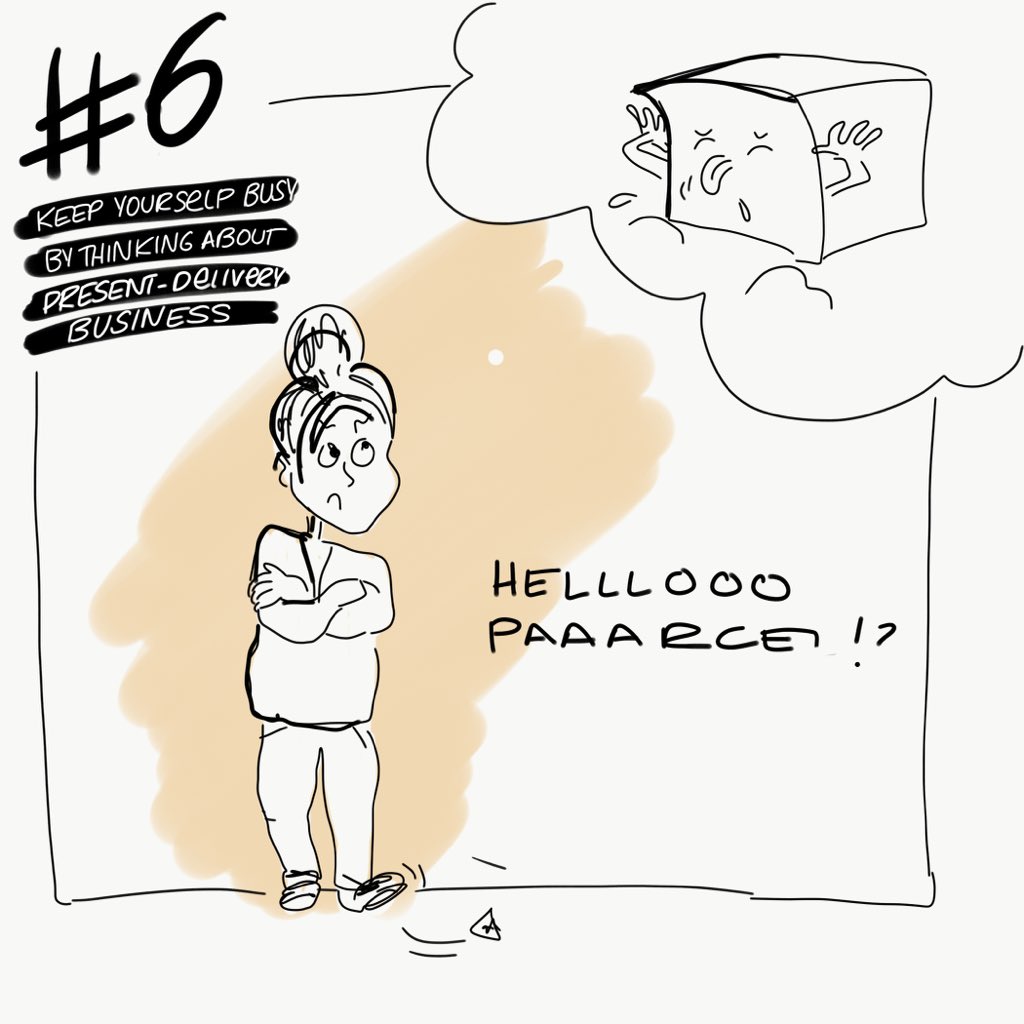 #6
KEEP YOURSELF BUSY
BY THINKING ABOUT
PRESENT-DELIVERY
BUSINESS
HELLLOOO
PAAARCEL !?
A